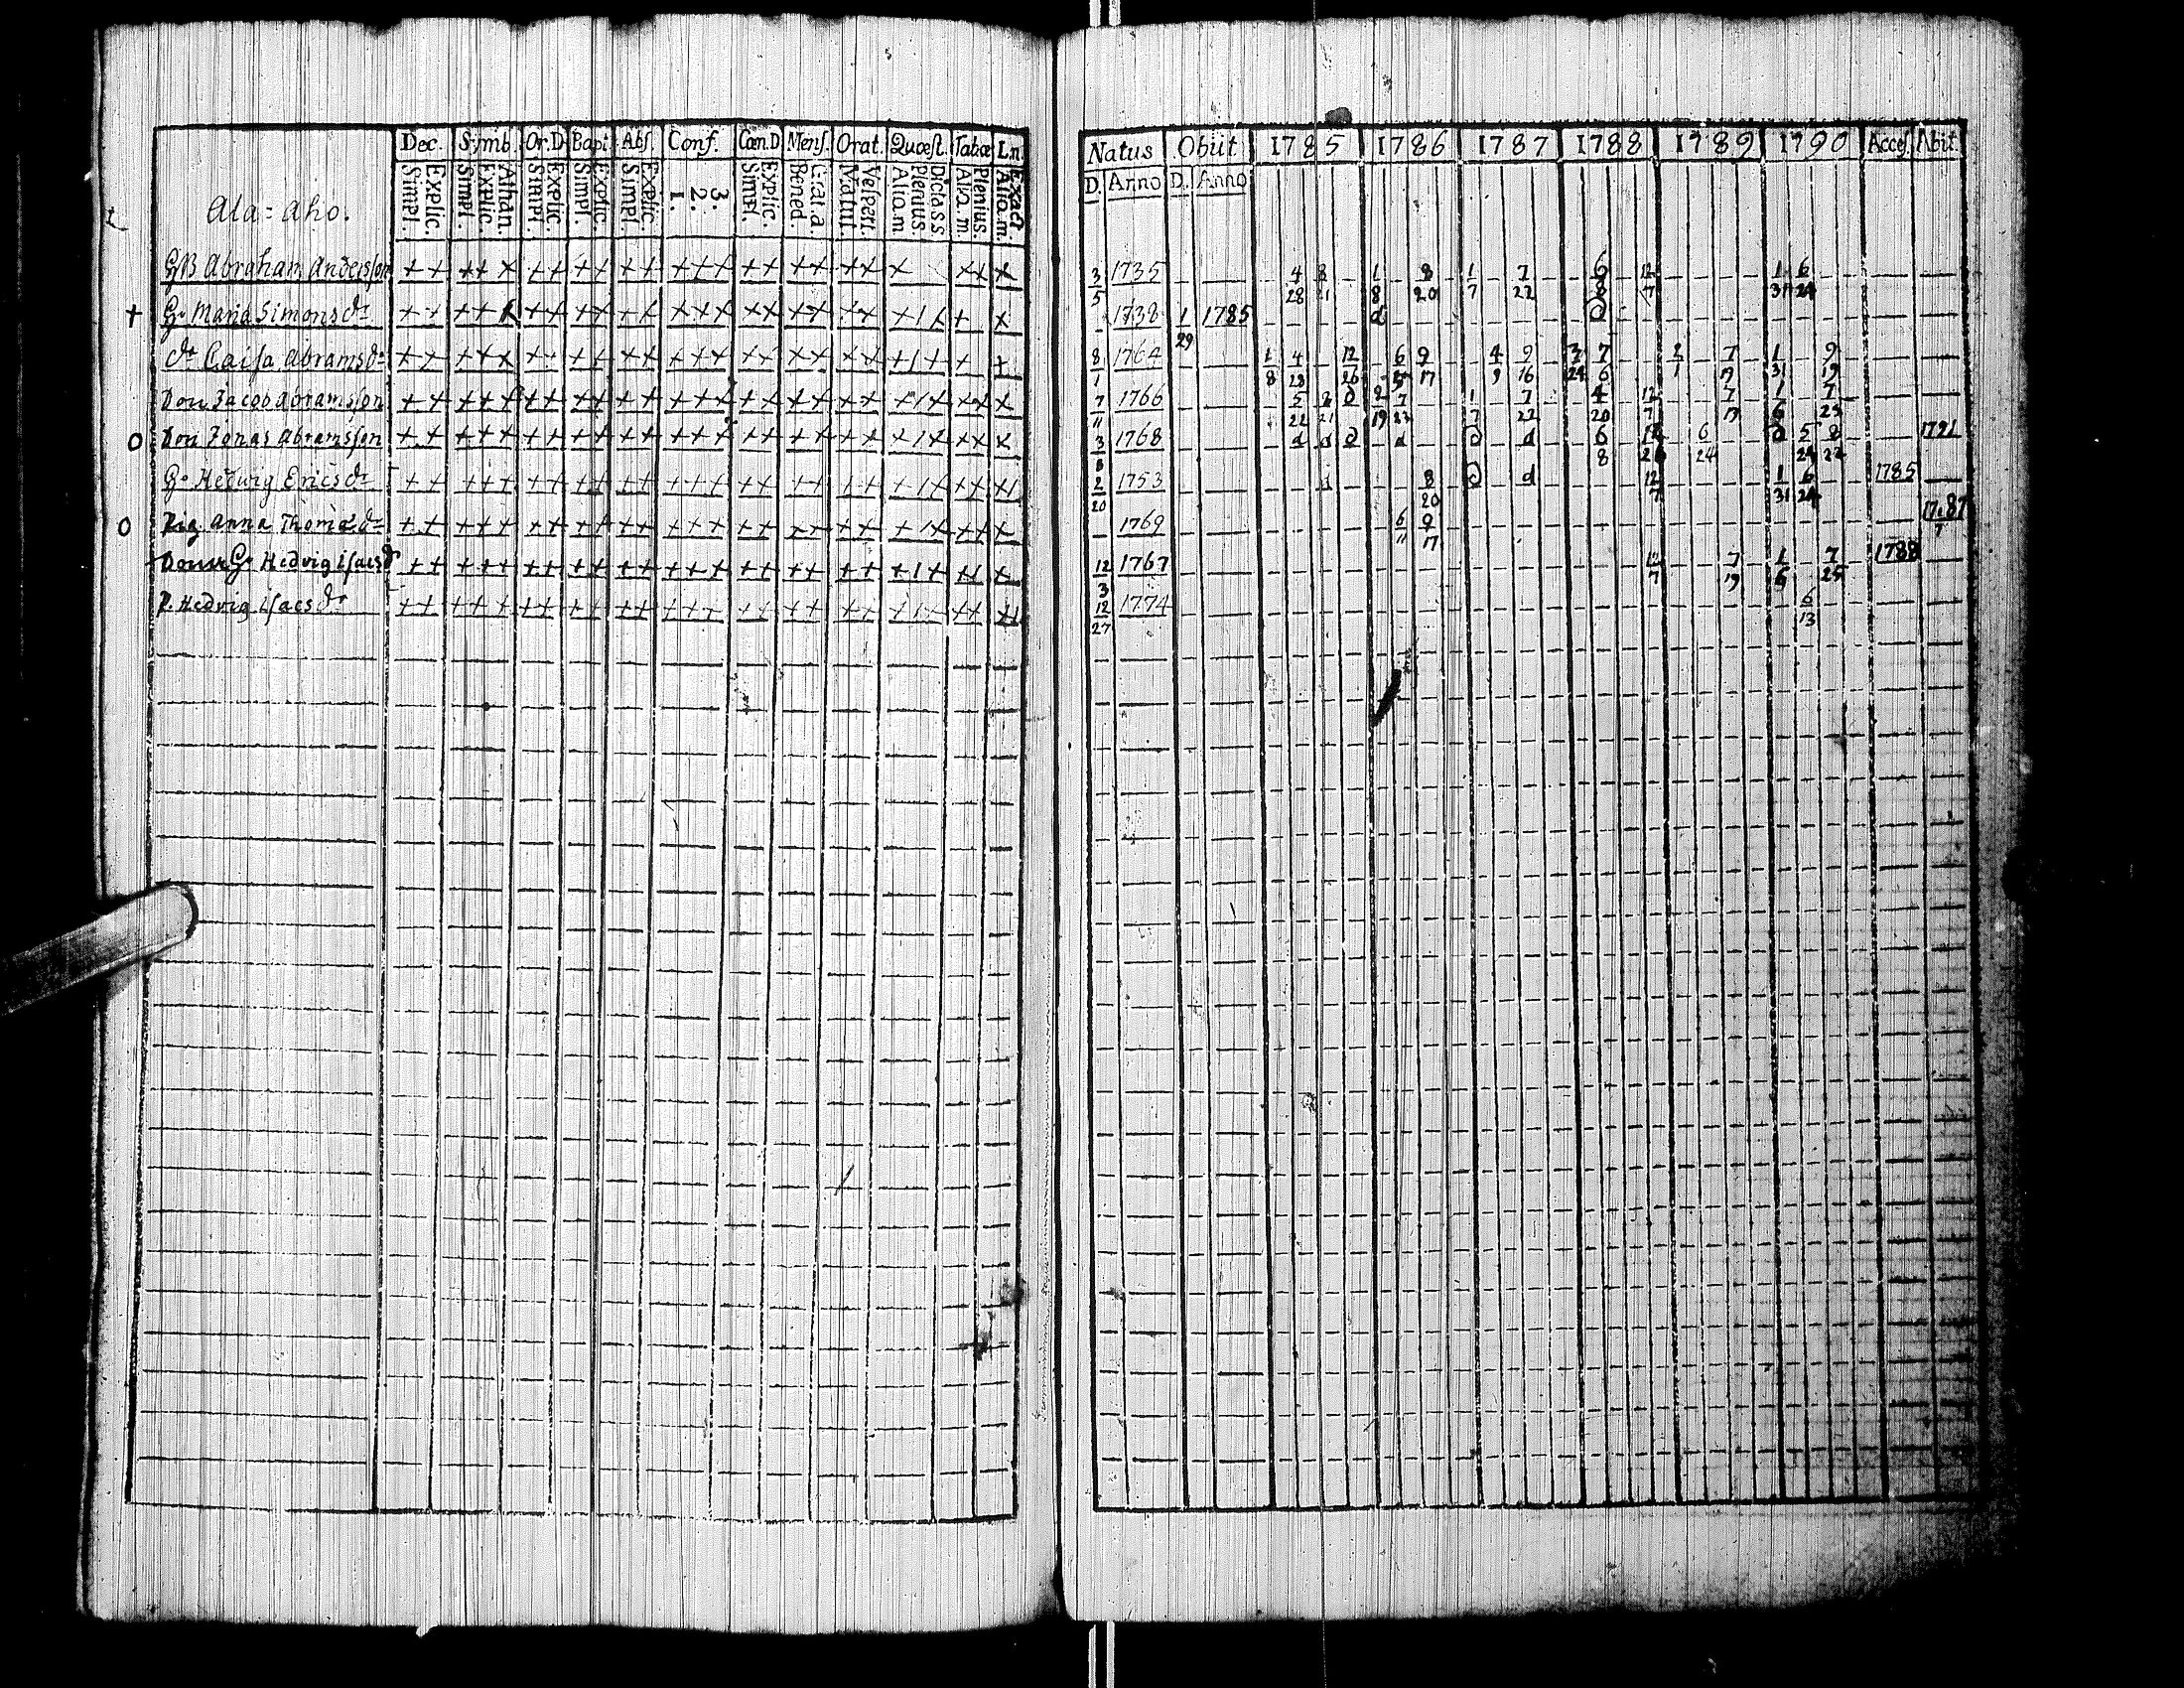 Dec. Simb. Or.D Bapt. Abſ. Conf. Cœn.D Menſ. Orat. Quœſt. Tabœ L.n.
Simpl. Explic. Simpl. Explic. Athan. Simpl. Explic. Simpl. Explic. Simpl. Explic. 1. 2. 3. Simpl. Explic. Bened. Grat.a Matut. Veſpert. Alio.m Plenius. Dicta.s.s Alio.m. Plenius. Alio.m. Exact.
Ala=aho.
GB Abraham Andersſon
+ G. Maria Simonsdr
dr Caiſa Abramsdr
Don Jacob abramsſon
o Don Jonas Abramsſon
G. Hedwig Ericsdr
o Pig. Anna Thomædr
Donır G. Hedvig iſacsdr
P. Hedvig iſacsdr
Natus Obiit 1785 1786 1787 1788 1789 1790 Acceſ. Abit.
D. Anno D. Anno
3/5 1735 4/28 8/21 1/8 8/20 1/7 7/22 6/8 12/7 1/31 6/24
1738 1/29 1785 d
8/1 1764 1/8 4/28 12/26 9/17 4/9 9/16 7/6 2/1 7/19 1/31 9/19
7/11 1766 5/22 8/21 2/19 7/23 1/7 7/22 4/20 12/7 7/19 1/6 7/25
3/8 1768 d d d d d d 6/8 6/24 d 5/24 8/22 1791
2/20 1753 8/20 d d 12/7 1/31 6/24 1785
1769 6/11 9/17 1787
12/3 1767 12/7 7/19 1/6 7/25 1788
12/27 1774 6/13